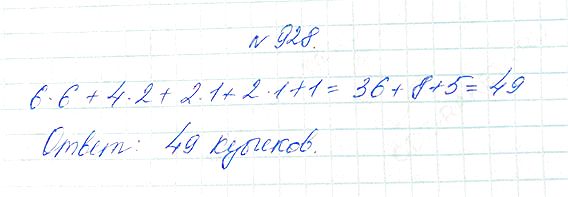 № 928.
6·6 + 4·2 + 2·1 + 2·1 + 1 = 36 + 8 + 5 = 49
Ответ: 49 кусков.